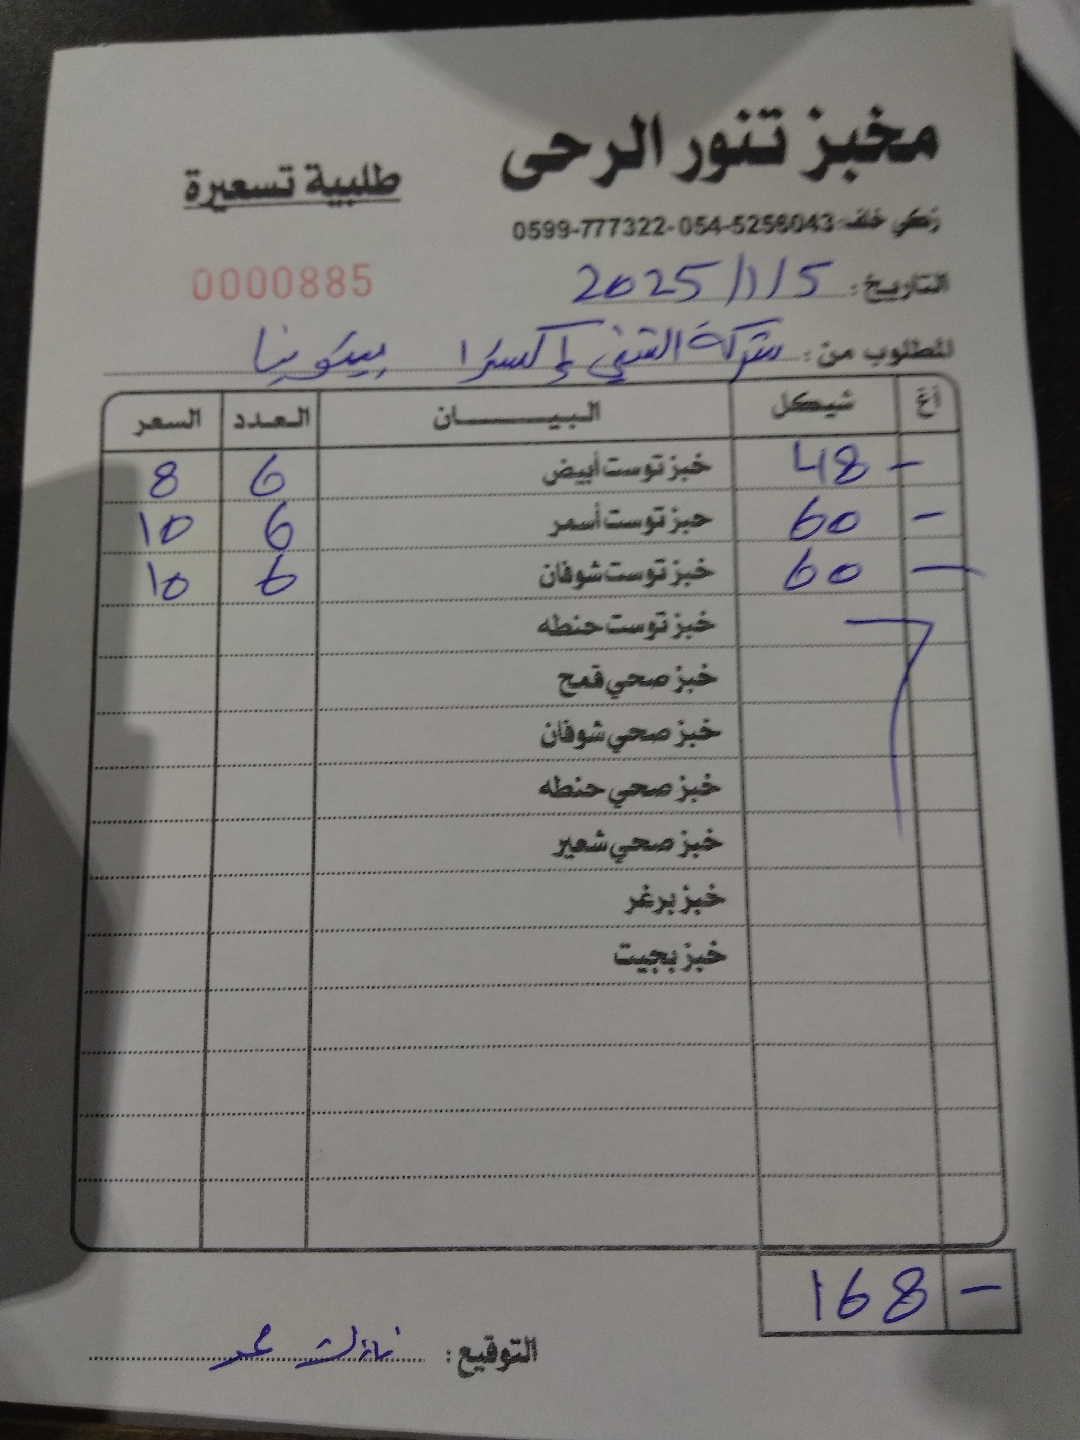 مخبز تنور الرحى
طلبية تسعيرة
زكي خلف: 054-5256043-0599-777322
0000885
التاريخ: 2025/1/5
المطلوب من: شركة الشني إكسترا بيتونيا
أغ شيكل البيـــــــان العدد السعر
- 48 خبز توست أبيض 6 8
- 60 خبز توست أسمر 6 10
- 60 خبز توست شوفان 6 10
خبز توست حنطه
خبز صحي قمح
خبز صحي شوفان
خبز صحي حنطه
خبز صحي شعير
خبز برغر
خبز بجيت
168 -
التوقيع: